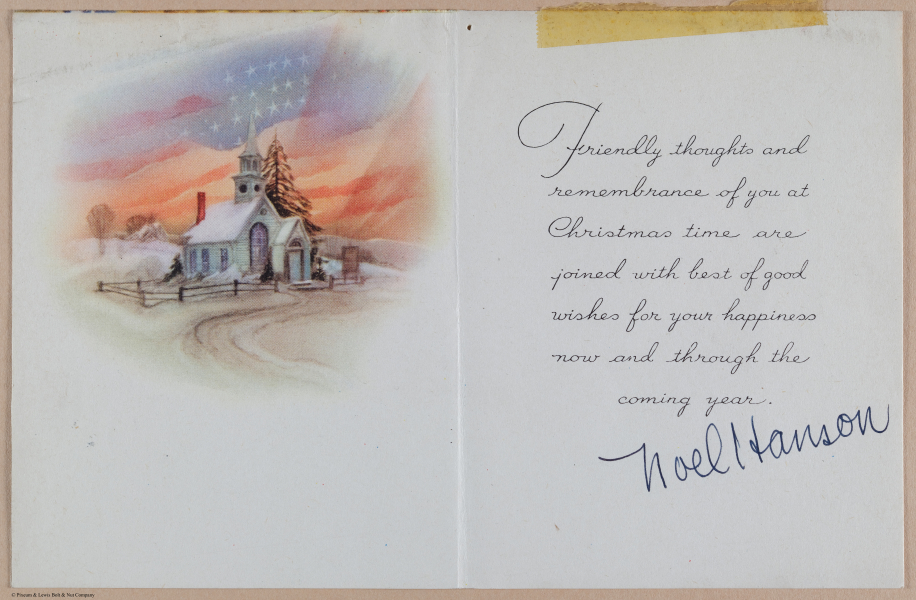 Friendly thoughts and
remembrance of you at
Christmas time are
joined with best of good
wishes for your happiness
now and through the
coming year.
Noel Hanson
© Plossum & Lewis Bolt & Nut Company